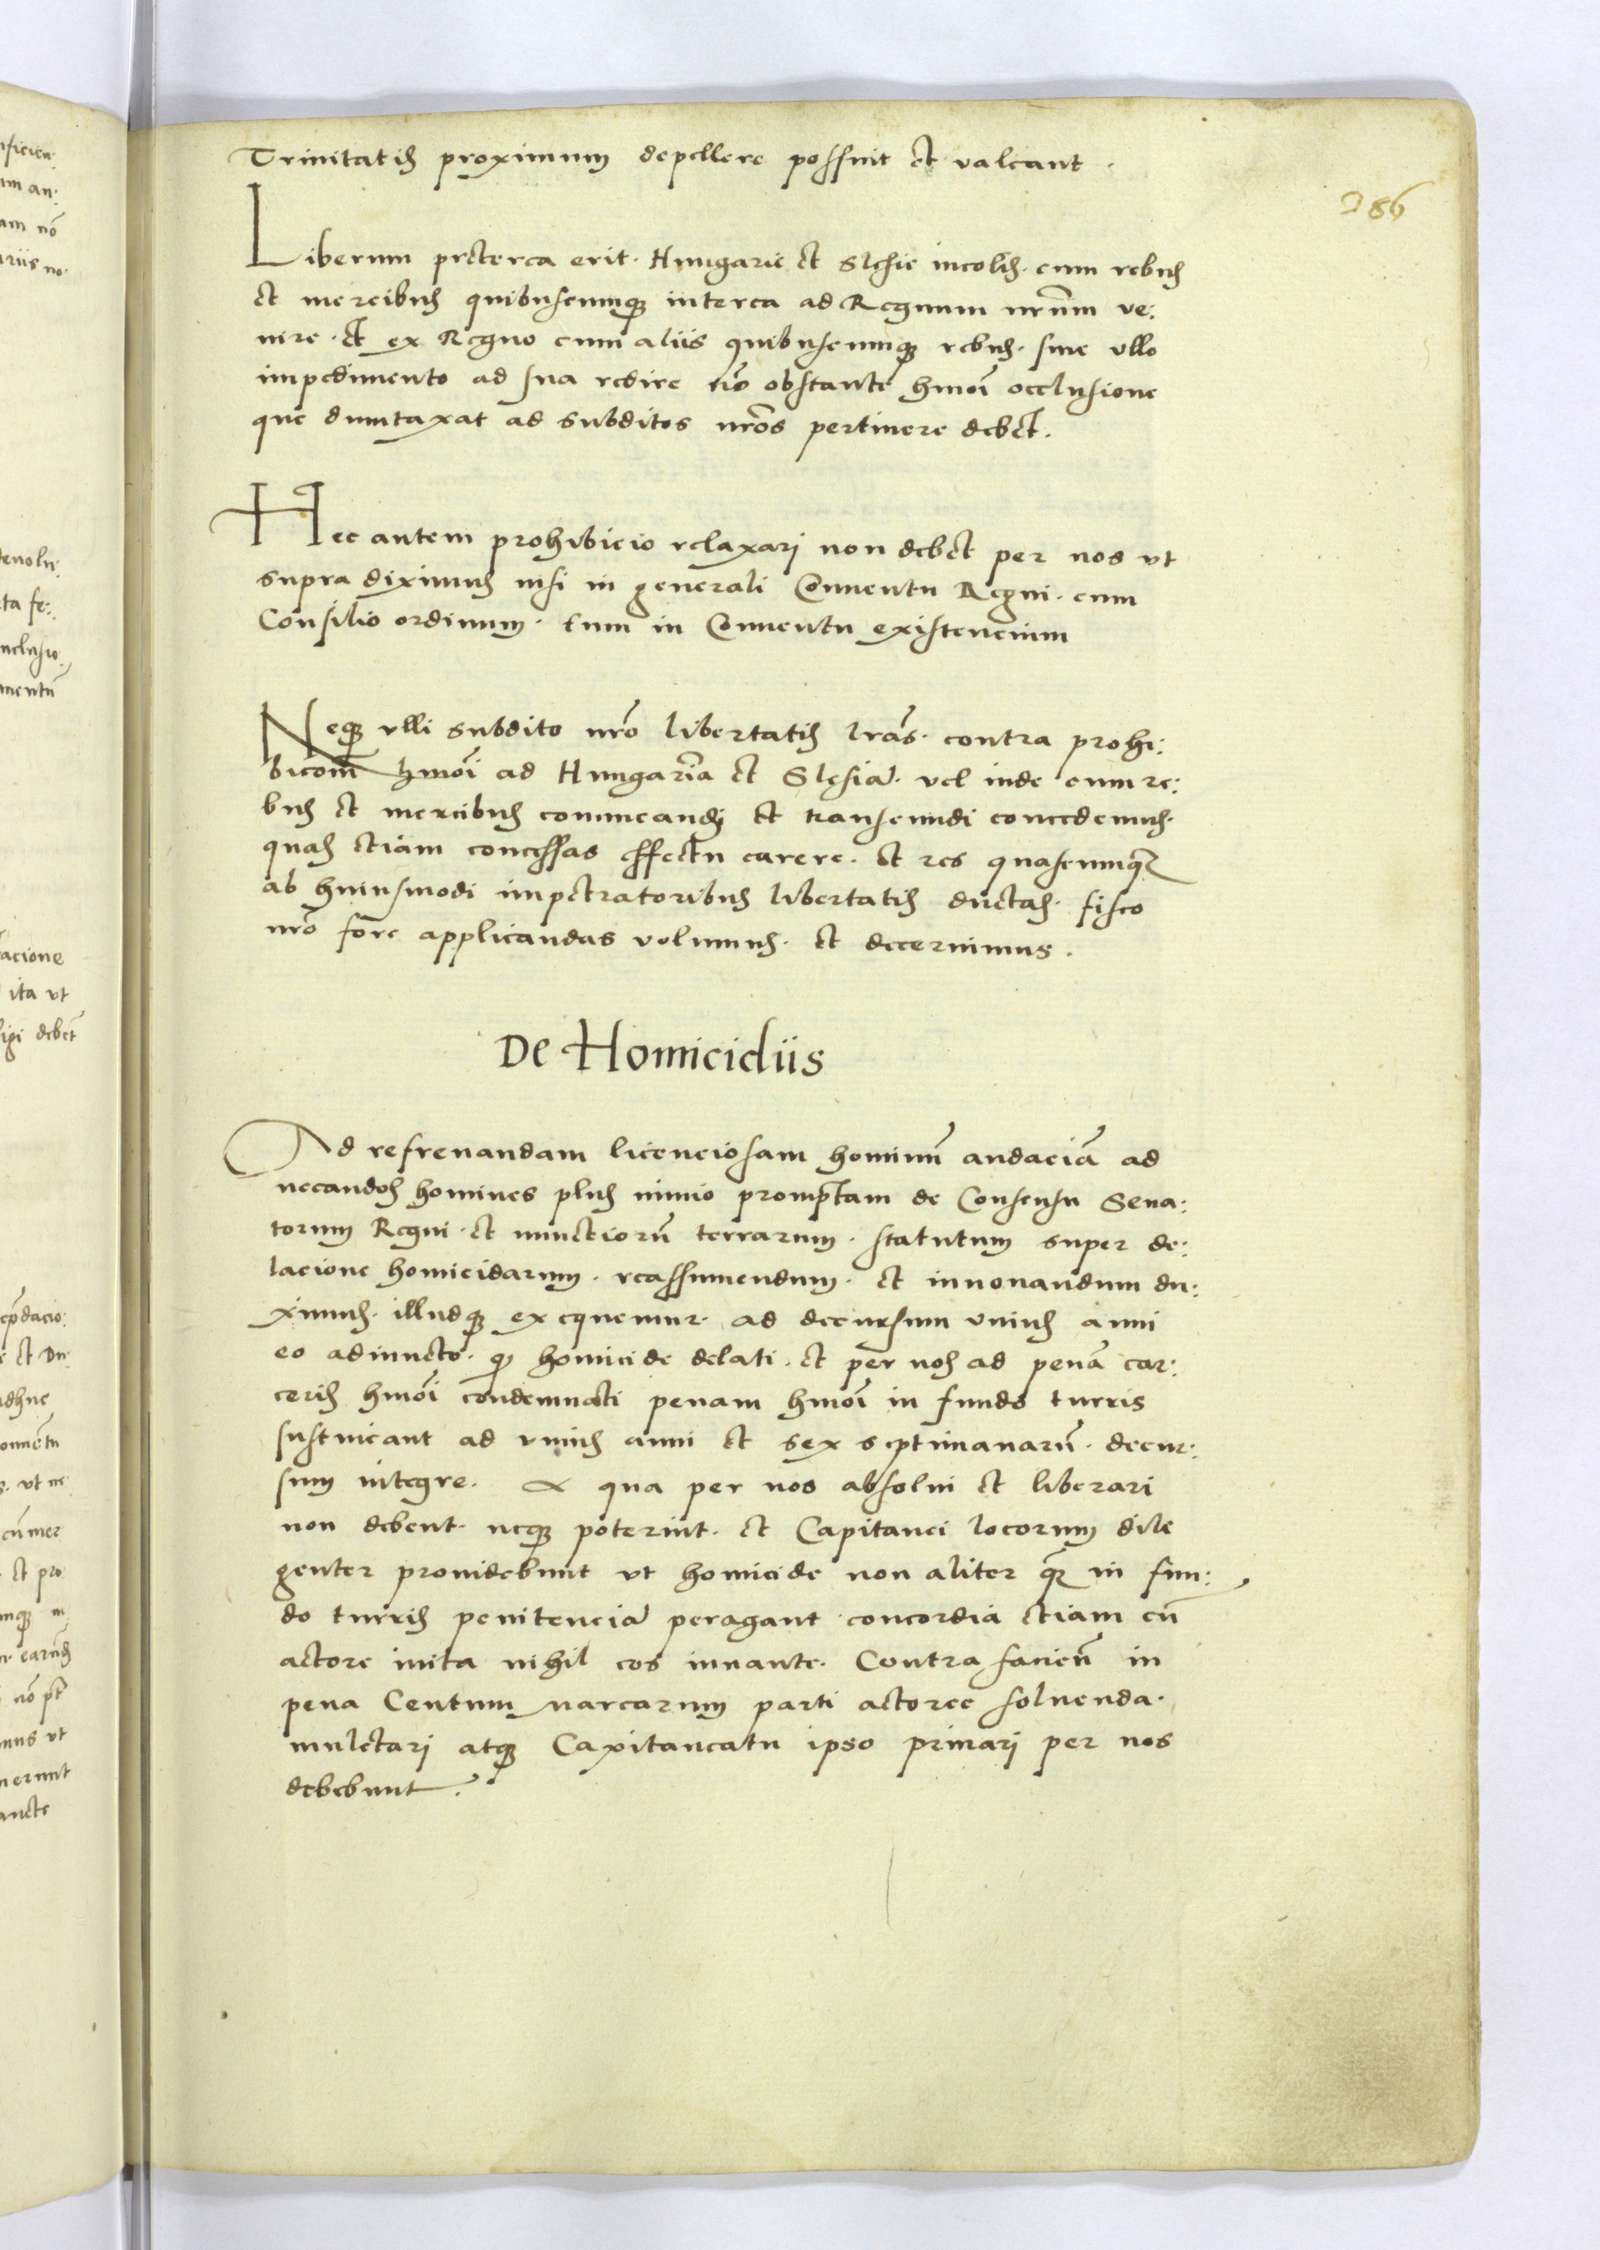 286
Trinitatis proximum depellere possint et valeant.
Liberum preterea erit. Hungarie et Slesie incolis. cum rebus
et mercibus quibuscumque interea ad Regnum nrũm ve:
nire. et ex Regno cum aliis quibuscumque rebus. sine vllo
impedimento ad sua redire nõ obstante hmõi occlusione
que dumtaxat ad subditos nrõs pertinere debet.
Hec autem prohibicio relaxari non debet per nos vt
supra diximus nisi in generali Conuentu Regni. cum
Consilio ordinum. tum in Conuentu existencium
Neque vlli subdito nrõ libertatis lrãs. contra prohi:
bicom̃ hmõi ad Hungariã et Slesiã. vel inde cum re:
bus et mercibus commeandi et transeundi concedemus.
quas etiam concessas effectu carere. et res quascumque
ab huiusmodi impetratoribus libertatis ductas. fisco
nrõ fore applicandas volumus. et decernimus.
De Homicidiis
Ad refrenandam licenciosam hominũ audaciã ad
necandos homines plus nimio promptam de Consensu Sena:
torum Regni. et nunctiorũ terrarum. statutum super de:
lacione homicidarum. reassumendum. et innouandum du:
ximus. illudque exequemur. ad decursum vnius anni
eo adiuncto. qƺ homicide delati. et per nos ad penã car:
ceris hmõi condemnati penam hmõi in fundo turris
sustineant ad vnius anni et sex septimanarũ. decur:
sum integre. A qua per nos absolui et liberari
non debent. neque poterint. et Capitanei locorum dile
genter prouidebunt vt homicide non aliter q̃ in fun:
do turris penitenciã peragant concordia etiam cũ
actore inita nihil eos iuuante. Contra facieñ in
pena Centum marcarum parti actoree soluenda.
mulctari atque Capitaneatu ipso priuari per nos
debebunt.